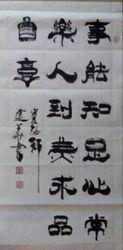 事能知足心常
樂人到無求品
自高